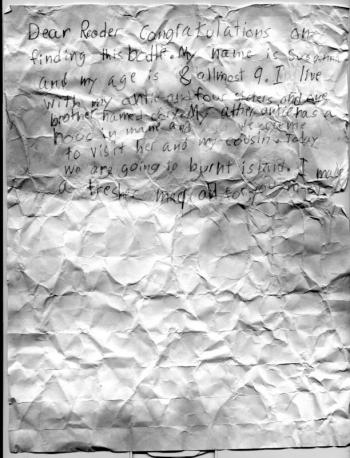 Dear Reader Congratulations on
finding this bottle. My name is Susanna
and my age is 8 allmost 9. I live
with my antie and four sisters and one
brother named My other antie has a
house in mane and
to visit her and my cousin. Today
we are going to burnt island. I made
a tresher map all for you